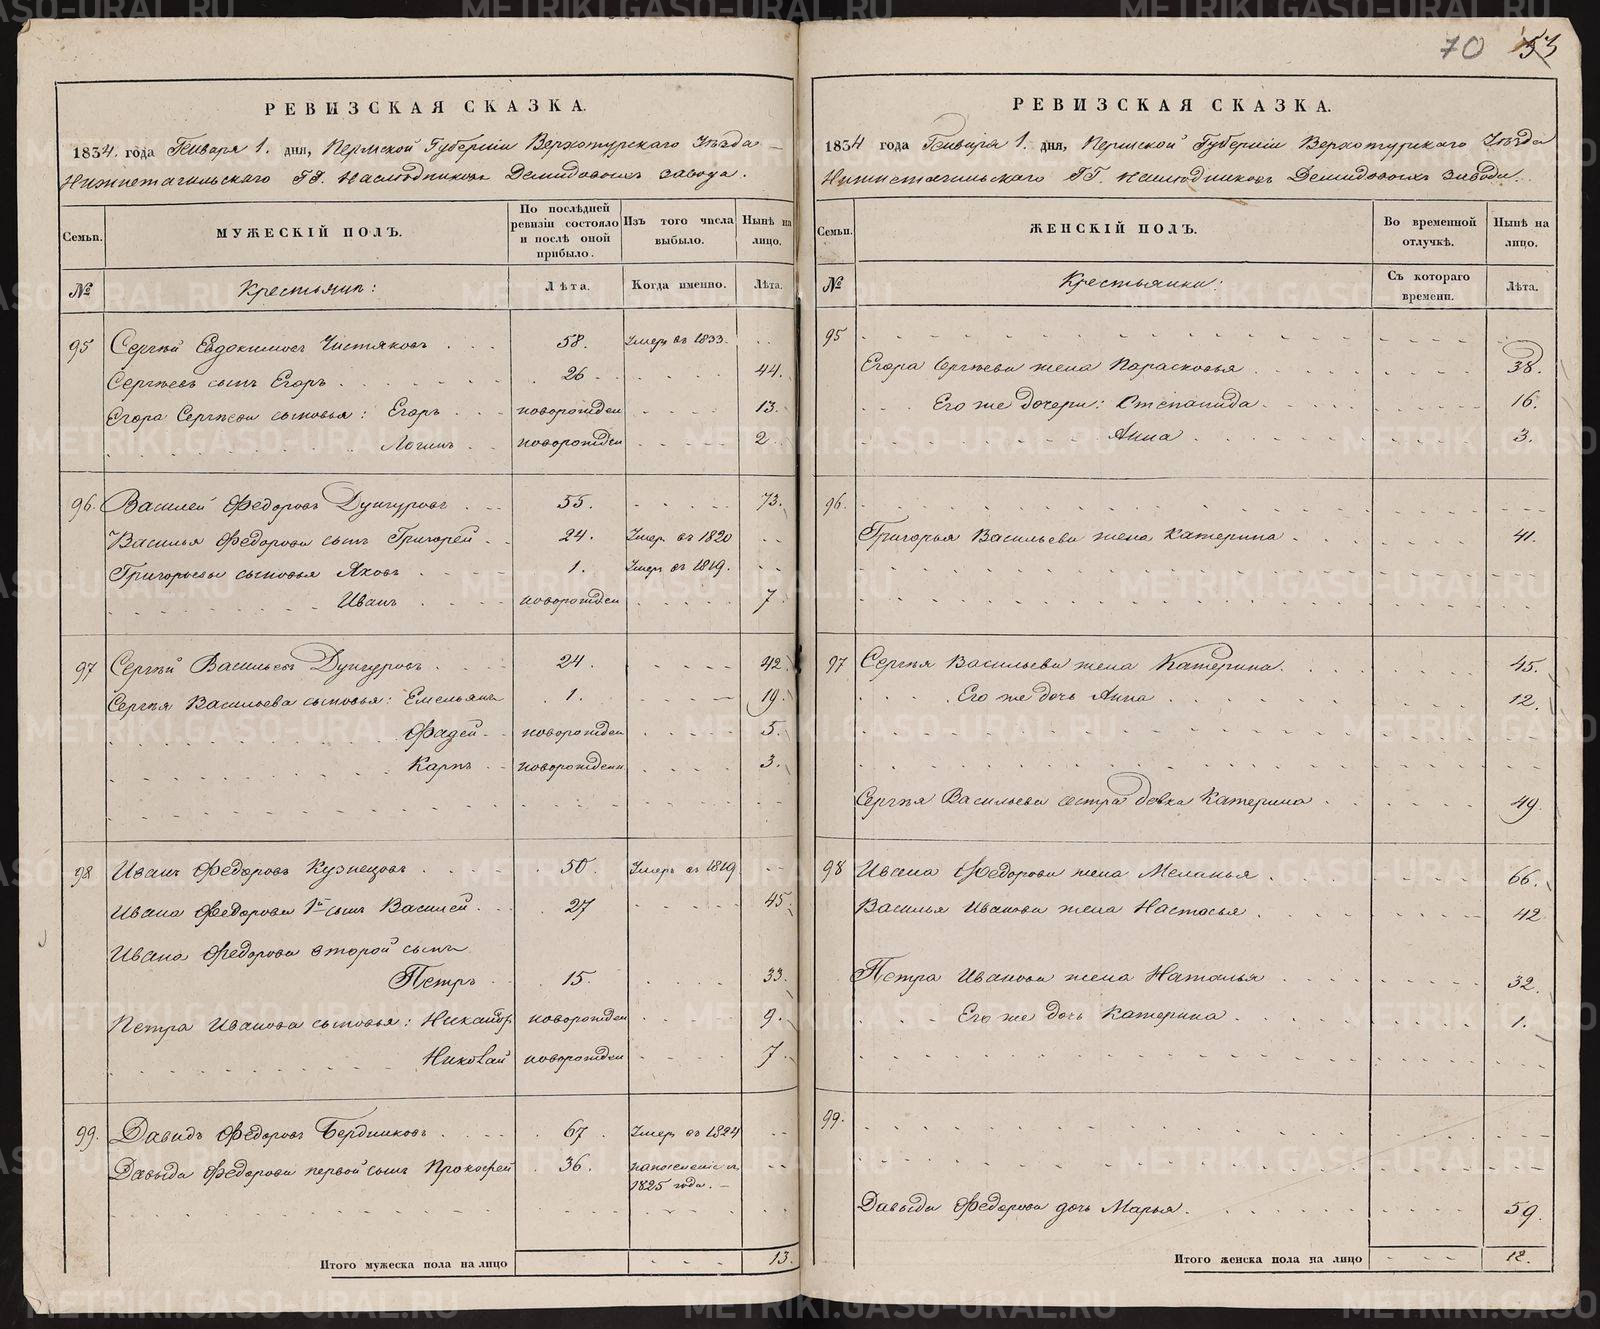 70 53
РЕВИЗСКАЯ СКАЗКА.
1834. года Генваря 1. дня, Пермской Губерніи Верхотурскаго Уѣзда
Нижнетагильскаго ГГ. Наслѣдниковъ Демидовыхъ завода.
Семьи. МУЖЕСКІЙ ПОЛЪ. По послѣдней ревизіи состояло и послѣ оной прибыло. Изъ того числа выбыло. Нынѣ на лицо.
№ Крестьянъ: Лѣта. Когда именно. Лѣта.
95 Сергѣй Евдокимовъ Чистяковъ 58. Умеръ въ 1833.
Сергѣевъ сынъ Егоръ 26 44.
Егора Сергѣева сыновья: Егоръ новорожден 13.
Логинъ новорожден 2
96. Василей Федоровъ Дунгуровъ 55. 73.
Василья Федорова сынъ Григорей 24. Умер. въ 1820
Григорьевы сыновья Яковъ 1. Умер. въ 1819.
Иванъ новорожден 7
97 Сергѣй Васильевъ Дунгуровъ 24. 42.
Сергѣя Васильева сыновья: Емельянъ 1. 19.
Фадей новорожден 5.
Карпъ новорожденн 3.
98 Иванъ Федоровъ Кузнецовъ 50. Умеръ въ 1819
Ивана Федорова 1й сынъ Василей 27 45.
Ивана Федорова второй сынъ
Петръ 15. 33.
Петра Иванова сыновья: Никаноръ новорожден 9.
Николай новорожден 7
99. Давидъ Федоровъ Бердниковъ 67. Умер. въ 1824
Давыда Федорова первой сынъ Прокофей 36. на поселеніе въ
1825 года.
Итого мужеска пола на лицо 13.
РЕВИЗСКАЯ СКАЗКА.
1834 года Генваря 1. дня, Пермской Губерніи Верхотурскаго Уѣзда
Нижнетагильскаго ГГ. Наслѣдниковъ Демидовыхъ завода.
Семьи. ЖЕНСКІЙ ПОЛЪ. Во временной отлучкѣ. Нынѣ на лицо.
№ Крестьянки: Съ котораго времени. Лѣта.
95
Егора Сергѣева жена Парасковья 38.
Его же дочери: Степанида 16.
Анна 3.
96.
Григорья Васильева жена Катерина 41.
97 Сергѣя Васильева жена Катерина. 45.
Его же дочь Анна 12.
Сергѣя Васильева сестра девка Катерина 49.
98 Ивана Федорова жена Меланья 66.
Василья Иванова жена Настасья 42
Петра Иванова жена Наталья 32.
Его же дочь Катерина 1.
99.
Давыда Федорова дочь Марья. 59.
Итого женска пола на лицо 12.
METRIKI.GASO-URAL.RU